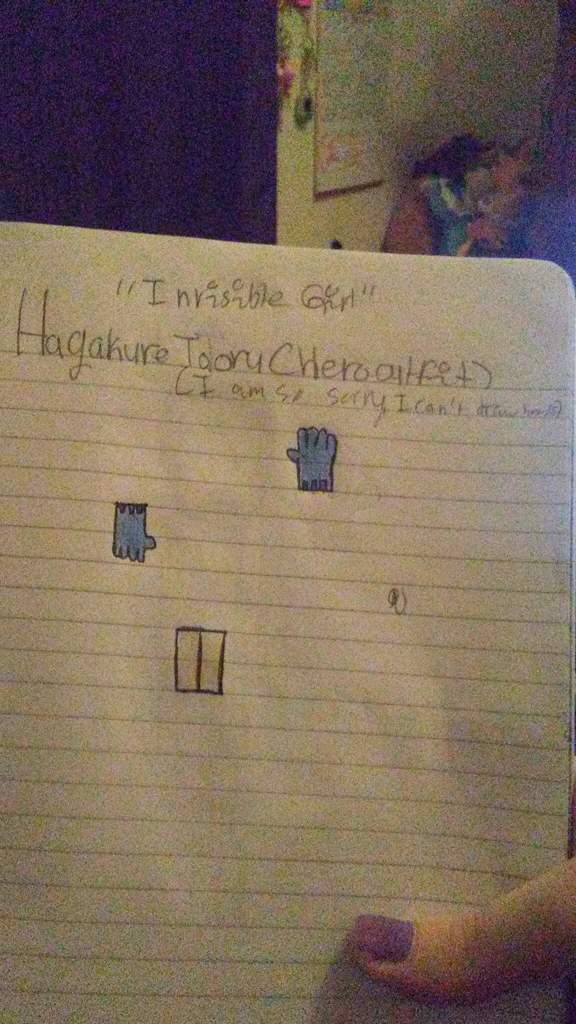 "Invisible Girl"
Hagakure Tooru (Hero outfit)
(I am so sorry, I can't draw hands)